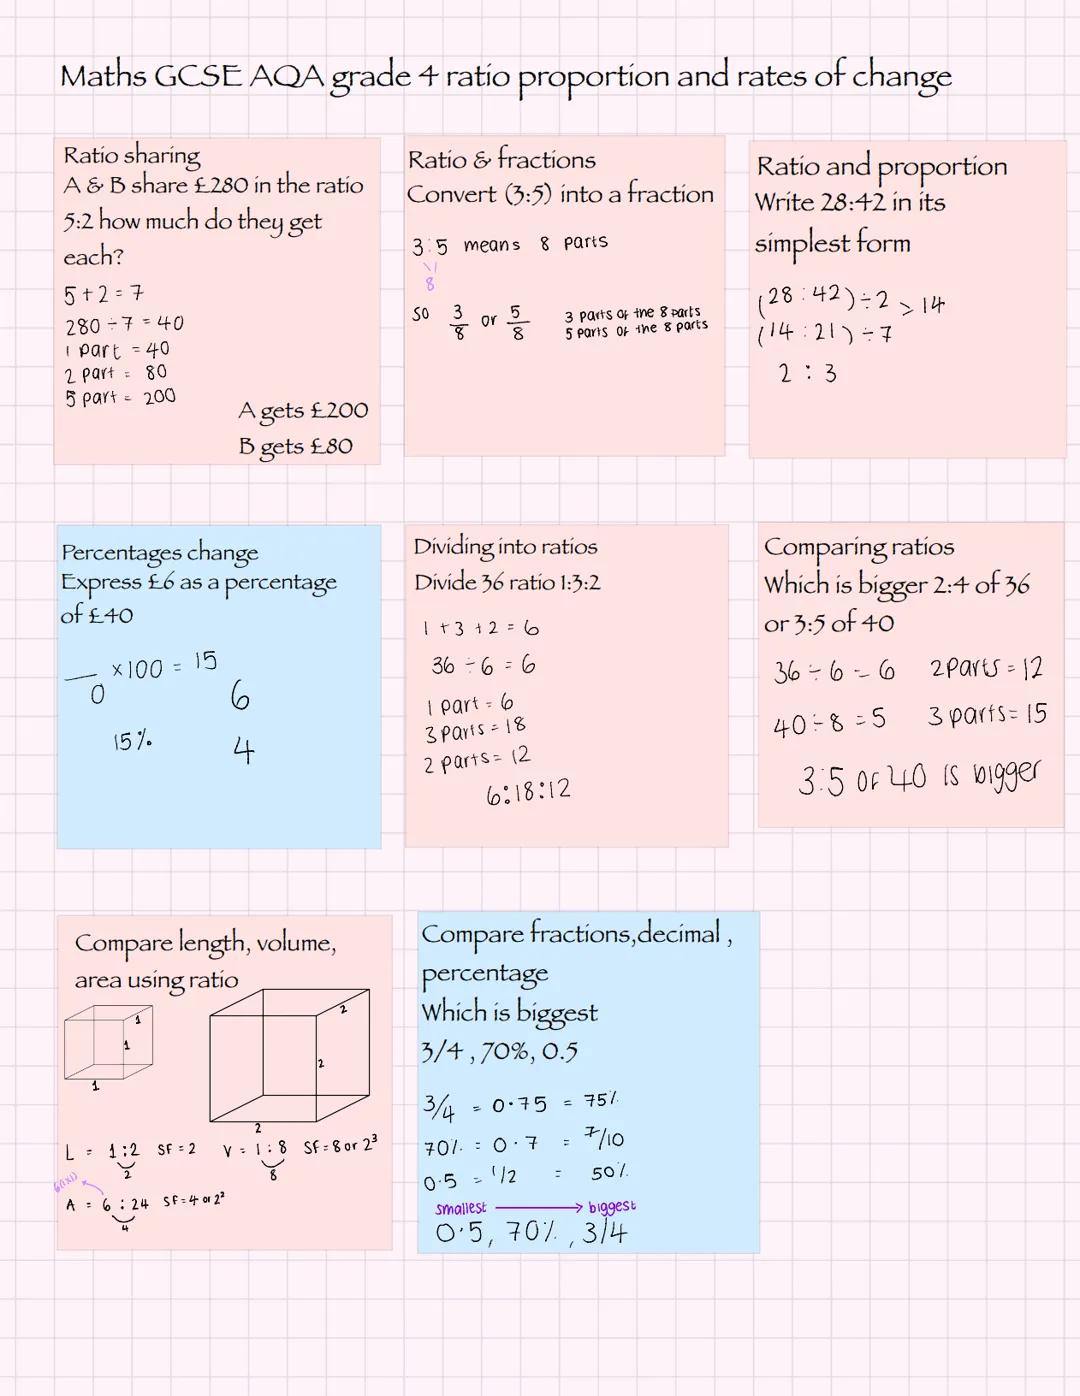 Maths GCSE AQA grade 4 ratio proportion and rates of change
Ratio sharing
A & B share £280 in the ratio
5:2 how much do they get
each?
5 + 2 = 7
280 ÷ 7 = 40
1 part = 40
2 part = 80
5 part = 200
A gets £200
B gets £80
Ratio & fractions
Convert (3:5) into a fraction
3:5 means 8 parts
8
so 3/8 or 5/8
3 parts of the 8 parts
5 parts of the 8 parts
Ratio and proportion
Write 28:42 in its
simplest form
(28 : 42) ÷ 2 > 14
(14 : 21) ÷ 7
2 : 3
Percentages change
Express £6 as a percentage
of £40
__ × 100 = 15
0
6
15%
4
Dividing into ratios
Divide 36 ratio 1:3:2
1 + 3 + 2 = 6
36 ÷ 6 = 6
1 part = 6
3 parts = 18
2 parts = 12
6:18:12
Comparing ratios
Which is bigger 2:4 of 36
or 3:5 of 40
36 ÷ 6 = 6 2 parts = 12
40 ÷ 8 = 5 3 parts = 15
3:5 of 40 is bigger
Compare length, volume,
area using ratio
1
1
1
2
2
2
L = 1:2 SF = 2
2
V = 1:8 SF = 8 or 2³
8
6(1x1)
A = 6 : 24 SF = 4 or 2²
4
Compare fractions,decimal ,
percentage
Which is biggest
3/4 , 70%, 0.5
3/4 = 0.75 = 75%
70% = 0.7 = 7/10
0.5 = 1/2 = 50%
smallest → biggest
0.5, 70%, 3/4